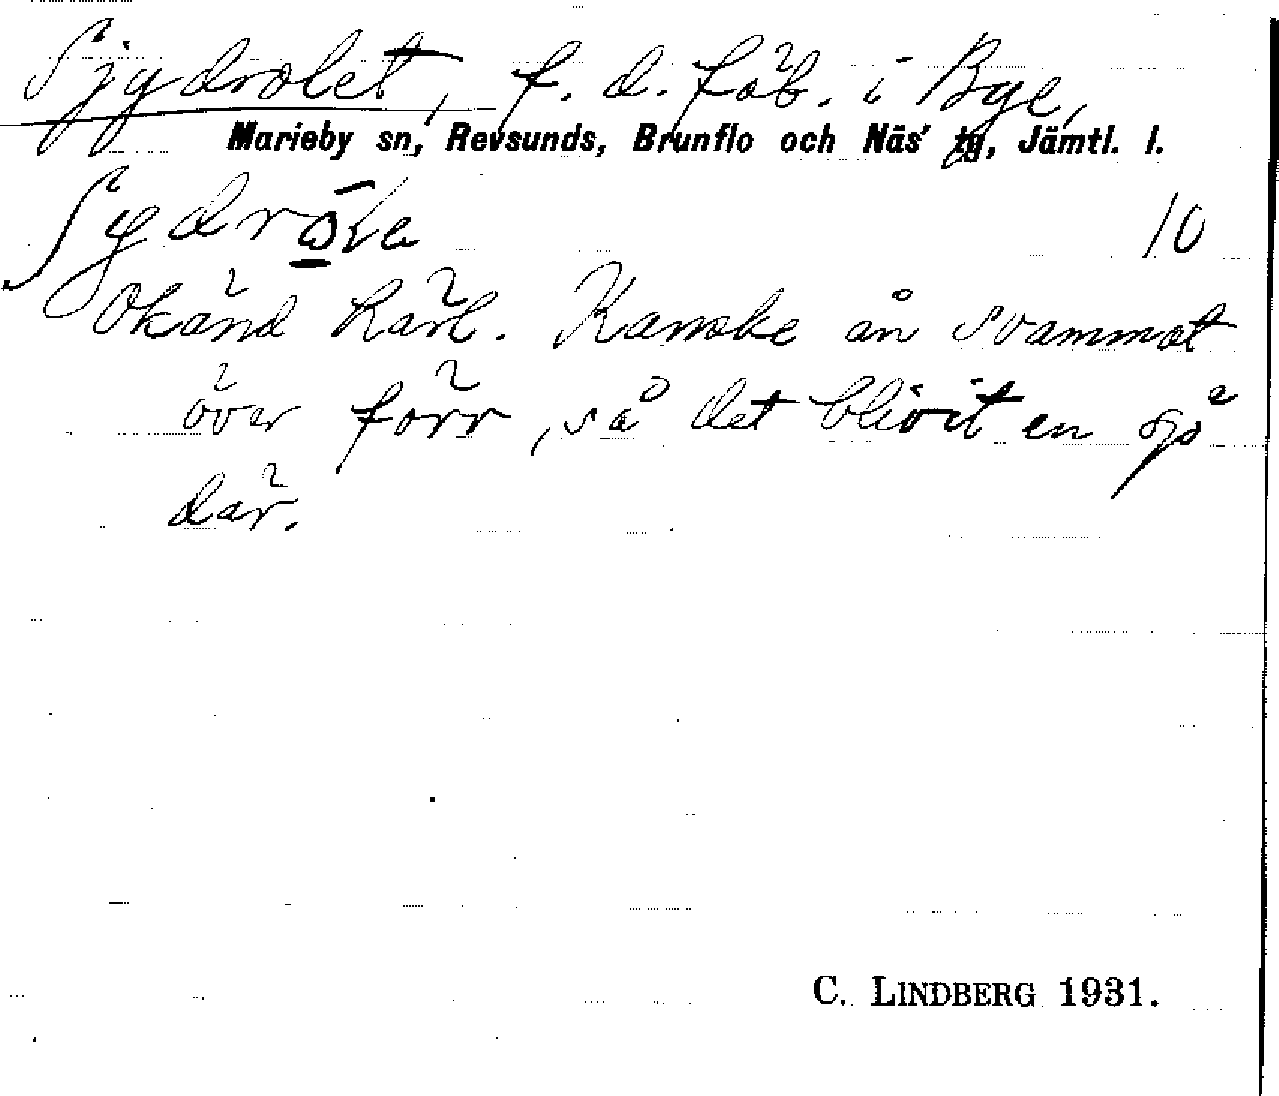 Sjydrolet, f. d. fäb. i Bye,
Marieby sn, Revsunds, Brunflo och Näs' tg, Jämtl. l.
10
Okänd härl. Kanske ån svammat
över förr, så det blivit en ö
där.
C. LINDBERG 1931.